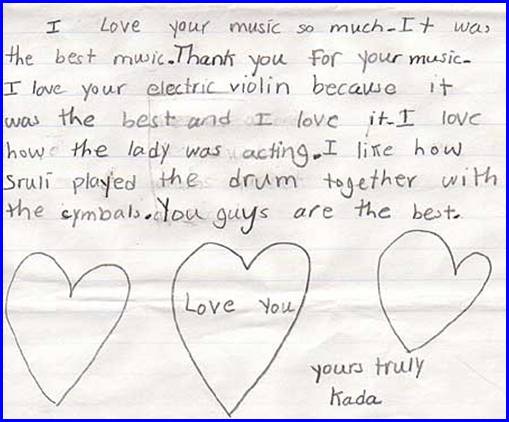 I Love your music so much. It was
the best music. Thank you For your music.
I love your electric violin because it
was the best and I love it. I love
how the lady was acting. I like how
Sruli played the drum together with
the cymbals. You guys are the best.
Love You
yours truly
Kada